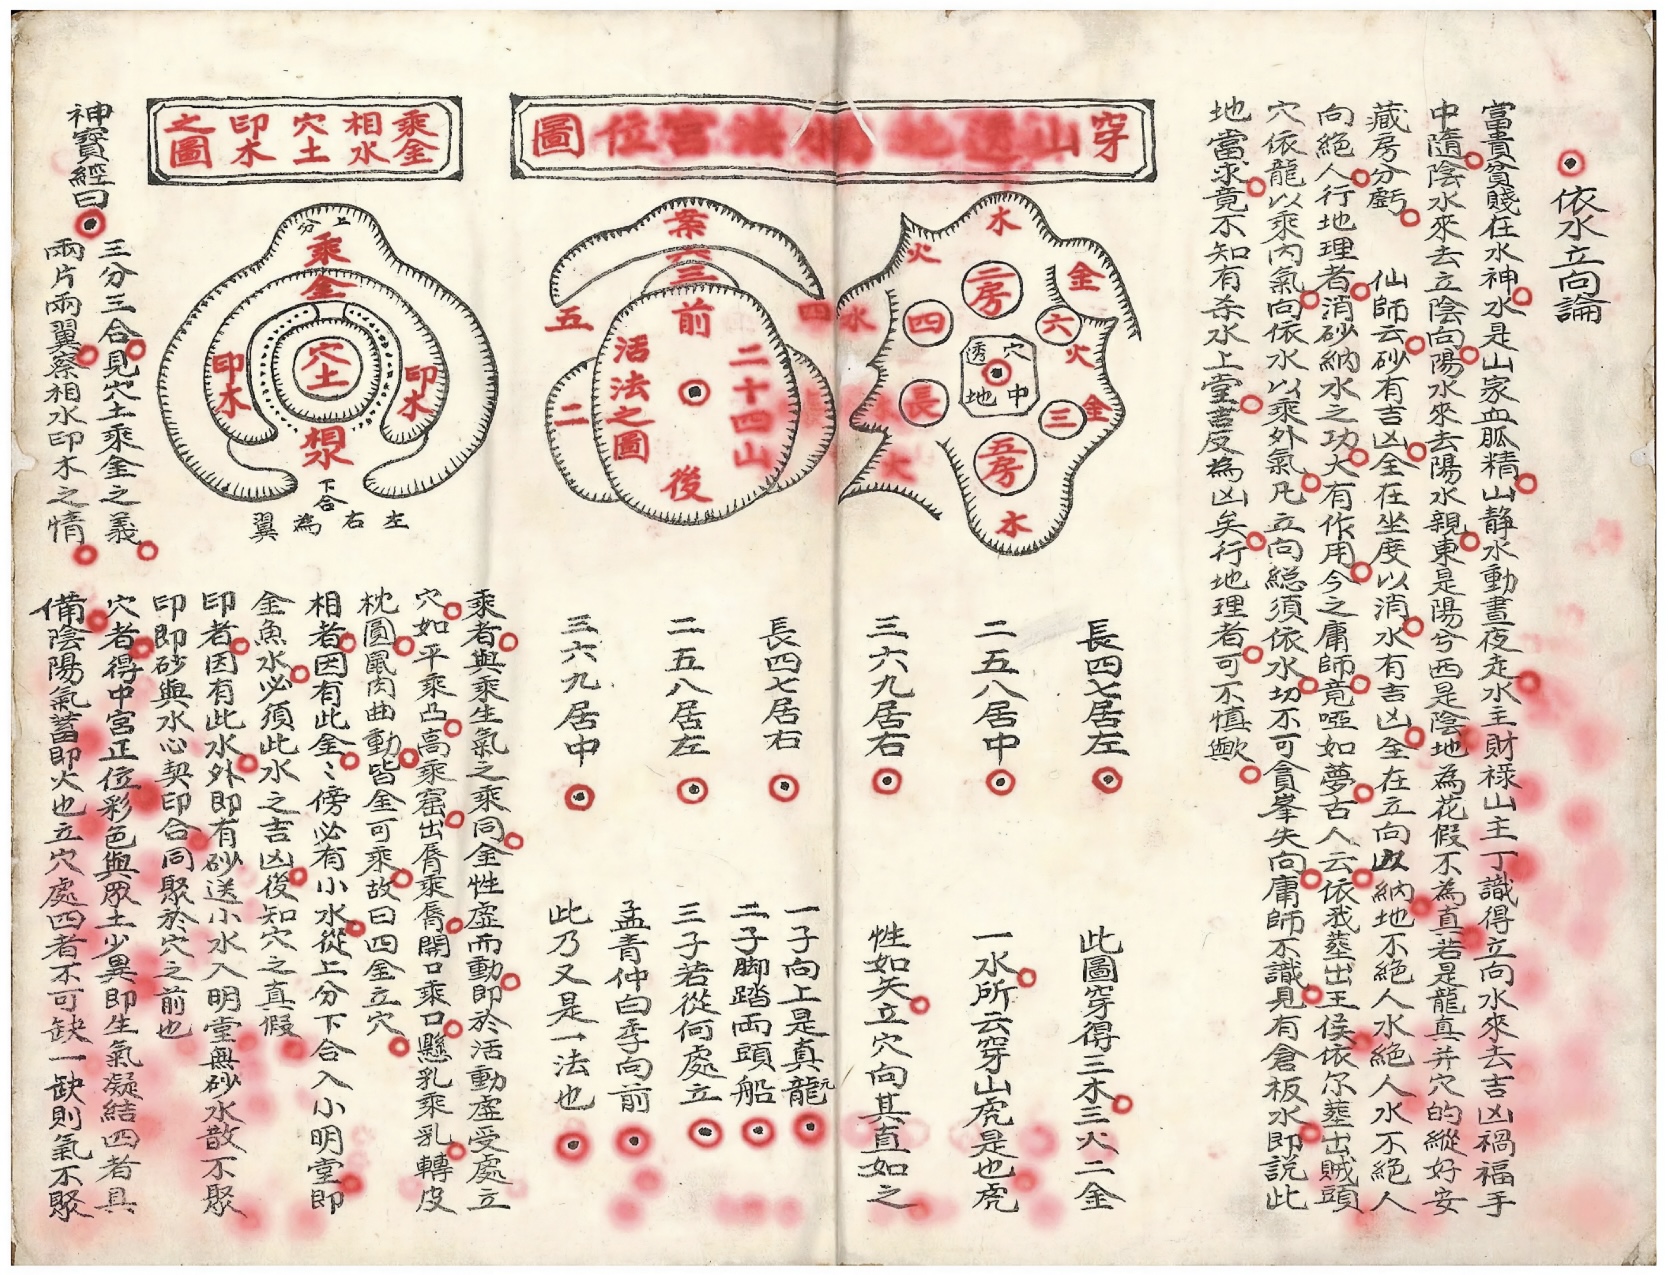 依水立向論
富貴貧賤在水神水是山家血脈精山静水動晝夜走水主財禄山主丁識得立向水來去吉凶禍福手
中隨陰水來去立陰向陽水來去陽水親東是陽兮西是陰地為花假不為真若是龍真并穴的縱好安
藏房分虧　仙師云砂有吉凶全在坐度以消水有吉凶全在立向以納地不絕人水絕人水不絕人
向絕人行地理者消砂納水之功大有作用今之庸師竟啞如夢古人云依我塟出王侯依尔塟出賊頭
穴依龍以乘內氣向依水以乘外氣凡立向縂須依水切不可貪峯失向庸師不識見有倉板水即說此
地當求竟不知有杀水上堂吉反為凶矣行地理者可不慎歟
穿山透地
宮位圖
水
火
金
二房
四
六
水
火
透地穴中
長
三
金
火
五房
木
長四七居左
二五八居中
三六九居右
此圖穿得三木三火二金
一水所云穿山虎是也虎
性如矢立穴向其直如之
案
三
前
四
五
二十四山
活法之圖
二
後
長四七居右
二五八居左
三六九居中
一子向上是真龍
二子脚踏両頭船
三子若從何處立
孟青仲白季向前
此乃又是一法也
乘金
相水
穴土
印木
之圖
上分
乘金
印木
穴土
印木
相水
下合
左右為翼
神寶經曰
三分三合見穴土乘金之義
兩片兩翼察相水印木之情
乘者與乘生氣之乘同金性虛而動即於活動虛受處立
穴如平乘凸高乘窟出唇乘唇開口乘口懸乳乘乳轉皮
枕圓鼠肉曲動皆金可乘故曰四金立穴
相者因有此金〻傍必有小水從上分下合入小明堂即
金魚水必須此水之吉凶後知穴之真假
印者因有此水外即有砂送小水入明堂無砂水散不聚
印即砂與水心契印合同聚於穴之前也
穴者得中宮正位彩色與眾土少異即生氣凝結四者具
備陰陽氣蓄即火也立穴處四者不可缺一缺則氣不聚